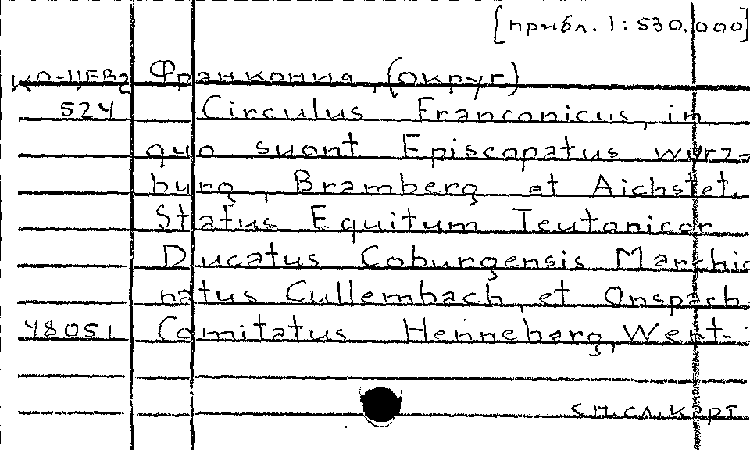 [прибл. 1:530,000]
Ко-ЦЕВ2 Франкония, (округ)
524 Circulus Franconicus, in
quo suont Episcopatus wurz-
burg, Bramberg et Aichstet.
Status Equitum Teutanicor
Ducatus Coburgensis Marchio
natus Cullembach, et Onspach
48051 Comitatus Henneberg, Wert-
см.сл.карт